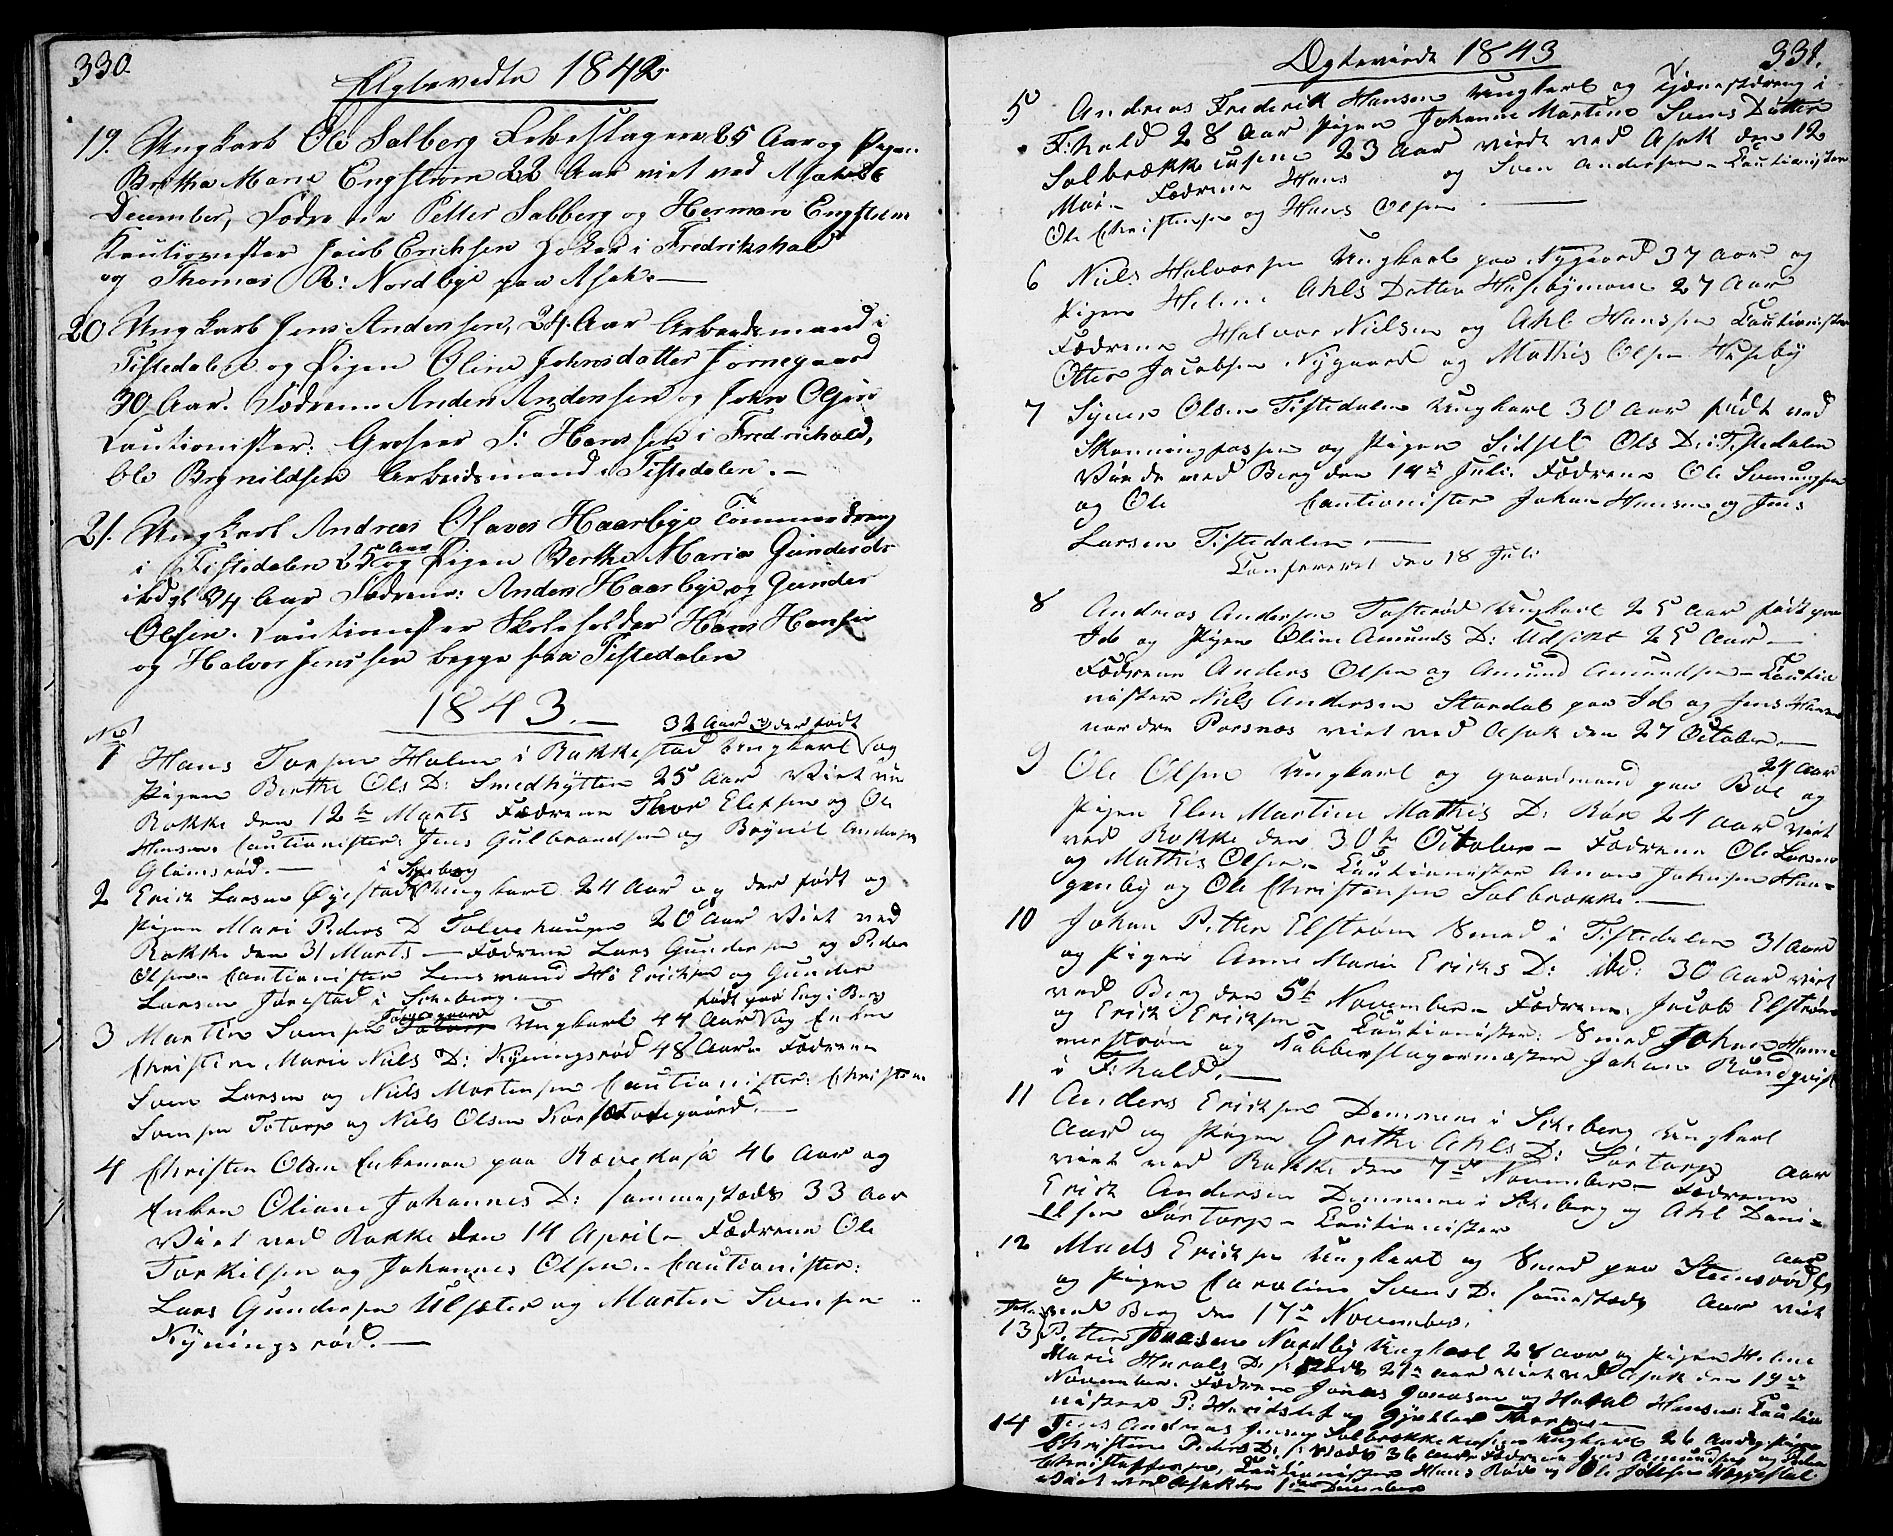 330.
Ægtevidte 1842.
19. Ungkarl Ole Salberg Feberslagere 25 Aar og Pigen
Berthe Marie Engstrøm 22 Aar viet ved Asak 26
December, Fædrene Petter Salberg og Herman Engstrøm
Kautionister Jacob Erichsen i Fredrikshald
og Thomas R: Nordbye paa Asak.—
20 Ungkarl Jens Andersen, 24 Aar Arbeidsmand i
Tistedalen og Pigen Oline Johnsdatter Tornegaard
30 Aar. Fædrene Anders Andersen og John Olsen
Cautionister: Grosserer T: Hanssen i Fredrichald,
Ole Brynildsen Arbeidsmand i Tistedalen.—
21. Ungkarl Andreas Olaves Haarbye Tømmerdreng
i Tistedalen 25 Aar og Pigen Berthe Maria Gundersdr
ibdgl 34 Aar Fædrene: Anders Haarbye og Gunder
Olsen. Cautionister Skoleholder Hans Hansen
og Halvor Jenssen begge paa Tistedalen
1843.—
No 1 Hans Torsen Holen i Rakkestad Ungkarl 32 Aar der født og
Pigen Berthe Ols D: Smedhytten 25 Aar Viet ved
Rokke den 12te Marts Fædrene Thor Elefsen og Ole
Hansen Cautionister: Jens Gulbrandsen og Brynil Andersen
Glomsrød.—
2 Erick Larsen Øyestad i Skeberg Ungkarl 24 Aar og der født og
Pigen Mari Peders D Tolvehaugen 20 Aar Viet ved
Rokke den 31 Marts — Fædrene Lars Gundersen og Peder
Olsen. Cautionister Lensmand Hs Ericksen og Gunder
Larsen Jørestad i Skeberg.—
3 Martin Svensen Totorp Ungkarl 44 Aar født paa Eng i Berg og Enken
Christine Marie Niels D: Kyningsrød 48 Aar. Fædrene
Sven Larsen og Niels Martinsen Cautionister: Christen
Svensen Totorp og Niels Olsen Korsætødegaard.—
4 Christen Olsen Enkemand paa Rævekasa 46 Aar og
Enken Oliane Johannes D: sammestads 33 Aar
Viet ved Rokke den 14 April. Fædrene Ole
Torkilsen og Johannes Olsen. Cautionister:
Lars Gundersen Ulsæter og Martin Svensen
Kyningsrød.—
331.
Ægteviede 1843
5 Andreas Frederik Hansen Ungkarl og Tjenestdreng i
F:hald 28 Aar Pigen Johanne Martine Svens Datter
Solbrække 23 Aar viede ved Asak den 12
Mai— Fædrene Hans og Sven Andersen— Cautionister
Ole Christensen og Hans Olsen
6 Niels Halvorsen Ungkarl paa Nygaard 37 Aar og
Pigen Helene Ahls Datter Husebymoen 27 Aar
Fædrene Halvor Nielsen og Ahl Hanssen Cautionister
Otter Jacobsen Nygaard og Mathis Olsen Huseby
7 Syver Olsen Tistedalen Ungkarl 30 Aar født ved
Skanningfossen og Pigen Sidsel Ols D: i Tistedalen
Viede ved Berg den 14de Juli. Fædrene Ole Svenungsen
og Ole Cautionister Johan Hansen og Jens
Larsen Tistedalen.—
Confereret den 18 Juli
8 Andreas Andersen Tosterød Ungkarl 25 Aar født paa
Id og Pigen Oline Amunds D: Udsikt 25 Aar—
Fædrene Anders Olsen og Amund Amundsen— Cautio
nister Niels Andersen Stordal paa Id og Jens Hansen
nordre Porsnæs viet ved Asak den 27 October.—
9 Ole Olsen Ungkarl og Gaardmand paa Bøe 24 Aar og
Pigen Elen Martine Mathis D: Rør 24 Aar viet
ved Rokke den 30te October— Fædrene Ole Larsen
og Mathis Olsen— Cautionister Anon Johnsen Hau-
genby og Ole Christensen Solbrække.—
10 Johan Petter Elstrøm Smed i Tistedalen 31 Aar
og Pigen Anne Marie Ericks D: ibd: 30 Aar viet
ved Berg den 5te November— Fædrene: Jacob Elstrøm
og Erick Ericksen— Cautionister: Smed Johan Ham-
merstrøm og Kobberslagermester Johan Rundqvist
i F:hald.—
11 Anders Ericksen Dammene i Skeberg Ungkarl
Aar og Pigen Grethe Ahls D: Sørtorp Aar
viet ved Rokke den 7de November— Fædrene
Erick Andersen Dammene i Skeberg og Ahl Dani-
elsen Sørtorp— Cautionister
12 Mads Ericksen Ungkarl og Smed paa Steensrød Aar
og Pigen Caroline Svens D: sammestads Aar viet
ved Berg den 17de November.
13 Petter Jonasen Nordby Ungkarl 28 Aar og Pigen Helene
Marie Haralds D: s:steds 21 aar viet ved Asak den 19de
November. Fædrene Jonas Jonasen og Harald Hansen: Cautio
nister P:
14 Jens Andreas Jensen Solbrækkekasen Ungkarl 26 Aar og Pigen
Christine Peders D: s:steds 36 Aar Fædrene Jens Amundsen og Peder
Christoffersen, Cautionister Hans Røds og Ole Joelsen
Viet ved Asak den 1ste December